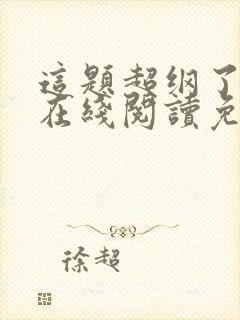 這題超纲了
在綫閱讀免
徐超